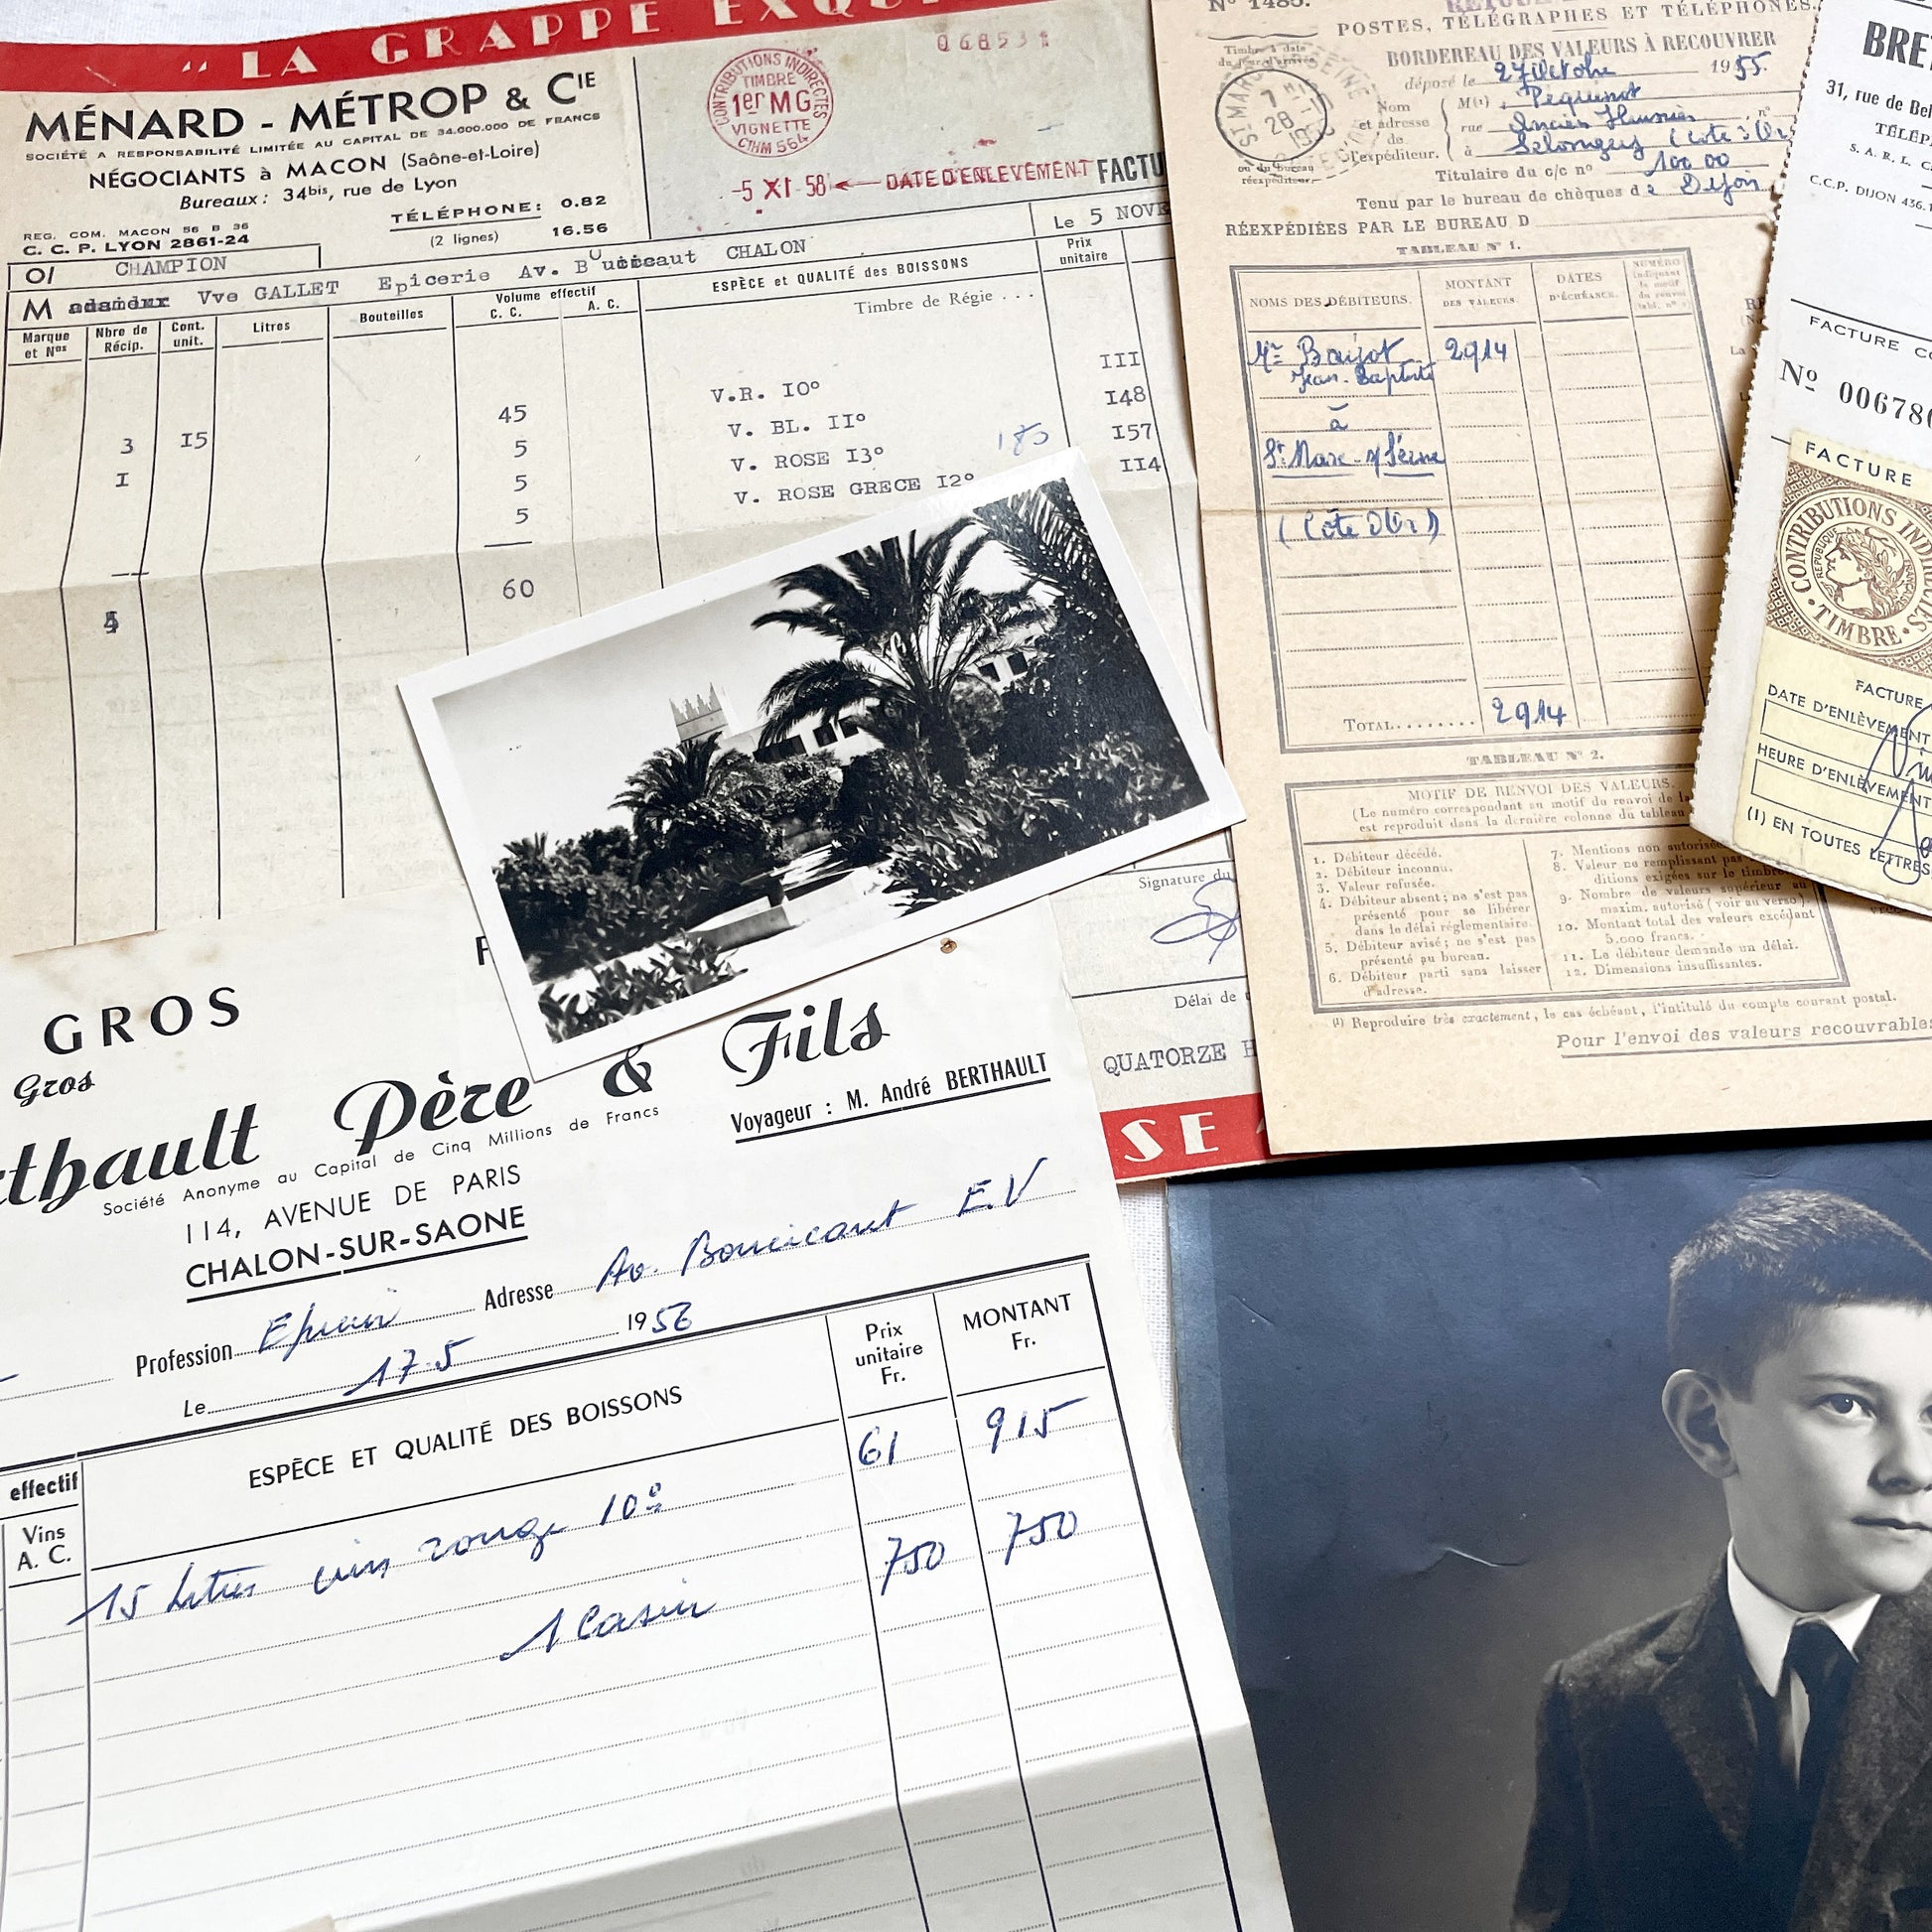 " LA GRAPPE EXQU
MÉNARD - MÉTROP & CIE
SOCIÉTÉ A RESPONSABILITÉ LIMITÉE AU CAPITAL DE 34.000.000 DE FRANCS
NÉGOCIANTS à MACON (Saône-et-Loire)
Bureaux : 34bis, rue de Lyon
TÉLÉPHONE : 0.82
(2 lignes) 16.56
REG. COM. MACON 56 B 36
C. C. P. LYON 2861-24
068531
CONTRIBUTIONS INDIRECTES
TIMBRE
1er MG
VIGNETTE
CIHM 564
-5 XI-58 ← DATE D'ENLÈVEMENT FACTU
Le 5 NOVE
O/ CHAMPION
M Vve GALLET Epicerie Av. CHALON
Marque et Nos
Nbre de Récip.
Cont. unit.
Litres
Bouteilles
Volume effectif
C. C. A. C.
ESPÈCE et QUALITÉ des BOISSONS
Prix unitaire
Timbre de Régie . . .
3 I5 45 V.R. I0° III
I 5 V. BL. II° I48
5 V. ROSE I3° I57
5 V. ROSE GRECE I2° II4
60
Signature du
Délai de
QUATORZE
SE
N° 1485.
POSTES, TÉLÉGRAPHES ET TÉLÉPHONES.
BORDEREAU DES VALEURS À RECOUVRER
Timbre à date
du jour d'arrivée
ou du bureau
réexpéditeur
déposé le 27 Octobre 1955.
Nom et adresse de l'expéditeur.
M(1) Pequinot
rue Ancien
à Selongey (Cote d'Or
Titulaire du c/c n° 100 00
Tenu par le bureau de chèques de Dijon
RÉEXPÉDIÉES PAR LE BUREAU D
TABLEAU N° 1.
NOMS DES DÉBITEURS.
MONTANT DES VALEURS.
DATES D'ÉCHÉANCE.
NUMÉRO
Jean-Baptiste
2914
à
St Marc s/ Seine
(Côte D'Or)
TOTAL........ 2914
TABLEAU N° 2.
MOTIF DE RENVOI DES VALEURS.
(Le numéro correspondant au motif du renvoi de la
est reproduit dans la dernière colonne du tableau
1. Débiteur décédé.
2. Débiteur inconnu.
3. Valeur refusée.
4. Débiteur absent; ne s'est pas
présenté pour se libérer
dans le délai réglementaire.
5. Débiteur avisé; ne s'est pas
présenté au bureau.
6. Débiteur parti sans laisser
d'adresse.
7. Mentions non autorisées
8. Valeur ne remplissant pas
ditions exigées sur le timbre
9. Nombre de valeurs supérieur au
maxim. autorisé (voir au verso).
10. Montant total des valeurs excédant
5.000 francs.
11. Le débiteur demande un délai.
12. Dimensions insuffisantes.
(1) Reproduire très exactement, le cas échéant, l'intitulé du compte courant postal.
Pour l'envoi des valeurs recouvrables
BRE
31, rue de Bel
TÉLÉP
S. A. R. L. C
C.C.P. DIJON 436.1
FACTURE CO
No 00678
FACTURE
CONTRIBUTIONS INDIR
REPUBLIQUE FRANÇAISE
TIMBRE
FACTURE
DATE D'ENLÈVEMENT
HEURE D'ENLÈVEMENT
(1) EN TOUTES LETTRES
GROS
Gros
thault Père & Fils
Société Anonyme au Capital de Cinq Millions de Francs
Voyageur : M. André BERTHAULT
114, AVENUE DE PARIS
CHALON-SUR-SAONE
Profession Epicier Adresse Av. Boucicaut E.V
Le 17.5 1956
effectif
Vins
A. C.
ESPÈCE ET QUALITÉ DES BOISSONS
Prix unitaire Fr.
MONTANT Fr.
15 Litres vin rouge 10° 61 915
1 Casier 750 750